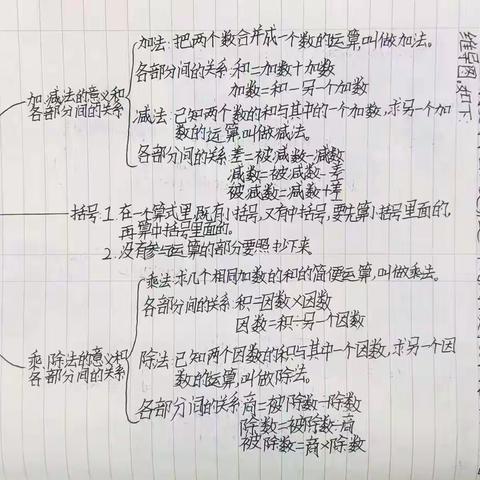 维导图如下
加法:把两个数合并成一个数的运算,叫做加法。
各部分间的关系:和=加数+加数
加数=和-另一个加数
加、减法的意义和
各部分间的关系
减法:已知两个数的和与其中的一个加数,求另一个加
数的运算,叫做减法。
各部分间的关系:差=被减数-减数
减数=被减数-差
被减数=减数+差
括号:1.在一个算式里,既有小括号,又有中括号,要先算小括号里面的,
再算中括号里面的。
2.没有参与运算的部分要照抄下来。
乘法:求几个相同加数的和的简便运算,叫做乘法。
各部分间的关系:积=因数×因数
因数=积÷另一个因数
乘、除法的意义和
各部分间的关系
除法:已知两个因数的积与其中一个因数,求另一个因
数的运算,叫做除法。
各部分间的关系:商=被除数÷除数
除数=被除数÷商
被除数=商×除数